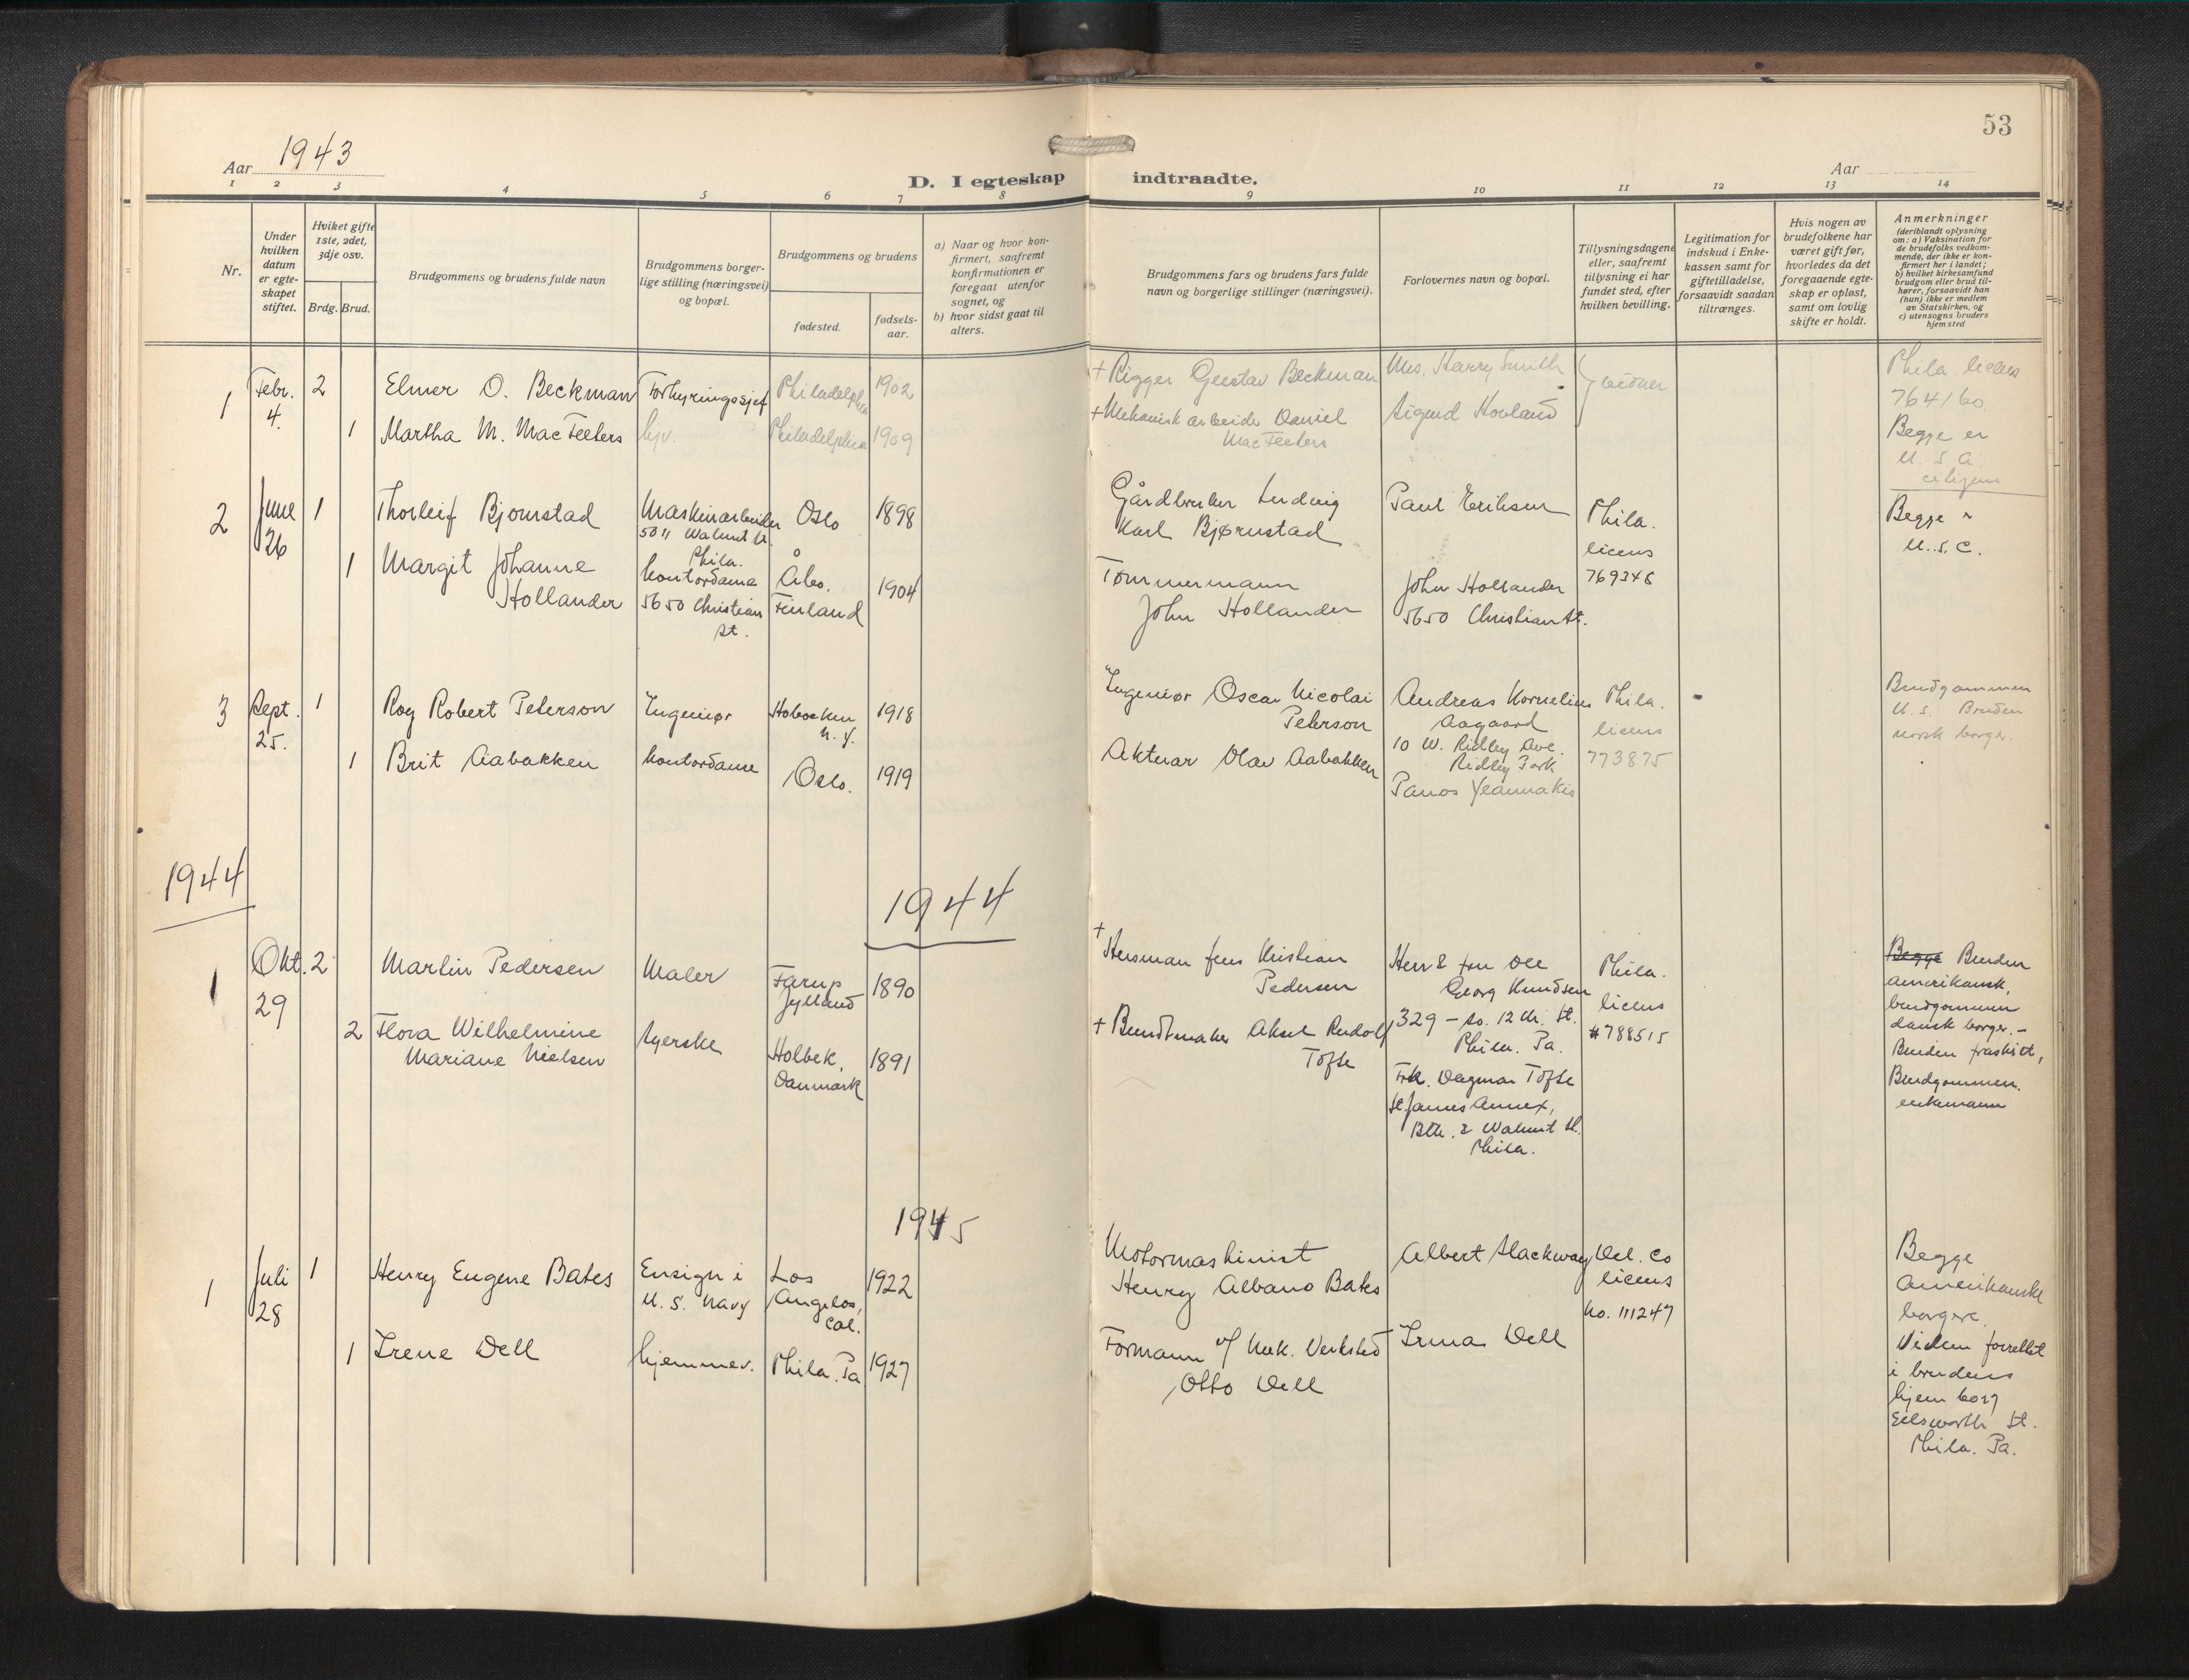 53
Aar 1943
Aar
D. I egteskap indtraadte.
1 2 3 4 5 6 7 8 9 10 11 12 13 14
Nr.
Under
hvilken
datum
er egte-
skapet
stiftet.
Hviket gifte
1ste, 2det,
3dje osv.
Brdg. Brud.
Brudgommens og brudens fulde navn
Brudgommens borger-
lige stilling (næringsvei)
og bopæl.
Brudgommens og brudens
fødested.
fødsels-
aar.
a) Naar og hvor kon-
firmert, saafremt
konfirmationen er
foregaat utenfor
sognet, og
b) hvor sidst gaat til
alters.
Brudgommens fars og brudens fars fulde
navn og borgerlige stillinger (næringsvei).
Forlovernes navn og bopæl.
Tillysningsdagene
eller, saafremt
tillysning ei har
fundet sted, efter
hvilken bevilling.
Legitimation for
indskud i Enke-
kassen samt for
giftetilladelse,
forsaavidt saadan
tiltrænges.
Hvis nogen av
brudefolkene har
været gift før,
hvorledes da det
foregaaende egte-
skap er opløst,
samt om lovlig
skifte er holdt.
Anmerkninger
(deriblandt oplysning
om: a) Vaksination for
de brudefolks vedkom-
mende, der ikke er kon-
firmert her i landet;
b) hvilket kirkesamfund
brudgom eller brud til-
hører, forsaavidt han
(hun) ikke er medlem
av Statskirken, og
c) utensogns bruders
hjemsted
1
Febr.
4.
2
Elmer O. Beckman
Forhyringssjef
Philadelphia
1902
+ Rigger Gustav Beckman
Mrs. Harry Smith
Phila. licens
764160.
1
Martha M. MacFeeters
hjv.
Philadelphia
1909
+ Mekanisk arbeider Daniel
MacFeeters
Sigurd Hovland
vidner
Begge er
U. S. A.
citizens
2
June
26
1
Thorleif Bjornstad
Maskinarbeider
5011 Walnut St.
Phila.
Oslo
1898
Gårdbruker Ludvig
Karl Bjørnstad
Paul Eriksen
Phila.
licens
769346
Begge "
U. S. C.
1
Margit Johanne
Hollander
kontordame
5650 Christian
St.
Åbo.
Finland
1904
Tømmermann
John Hollander
John Hollander
5650 Christian St.
3
Sept.
25.
1
Roy Robert Peterson
Ingeniør
Hoboken
N. Y.
1918
Ingeniør Oscar Nicolai
Peterson
Andreas Kornelius
Aagaard
10 W. Ridley Ave.
Ridley Park
Phila.
licens
773875
Brudgommen
U. S. Bruden
norsk borger.
1
Brit Aabakken
kontordame
Oslo.
1919
Aktuar Olav Aabakken
Panos Yeannakis
1944
1944
1
Okt.
29
2
Martin Pedersen
Maler
Farup
Jylland
1890
+
Husmann Jens Kristian
Pedersen
Herr & fru Ole
Georg Knudsen
329 - So. 12th. St.
Phila. Pa.
Phila.
licens
# 788515
Begge Bruden
amerikansk,
brudgommen
dansk borger. -
Bruden fraskilt,
Brudgommen.
enkemann
2
Flora Wilhelmine
Mariane Nielsen
Syerske
Holbek,
Danmark
1891
+ Bundtmaker Aksel Rudolf
Tofte
Frk. Dagmar Tofte
St James Annex,
13th. & Walnut St.
Phila.
1945
1
Juli
28
1
Henry Eugene Bates
Ensign i
U. S. Navy
Los
Angelos,
Cal.
1922
Motormaskinist
Henry Albano Bates
Albert Hackway
Del. Co
licens
No. 111247
Begge
amerikanske
borgere.
Vielsen forrettet
i brudens
hjem 6027
Ellsworth St.
Phila. Pa.
1
Irene Dell
hjemmev.
Phila. Pa
1927
Formann v/ Mek. Verksted
Otto Dell
Irma Dell